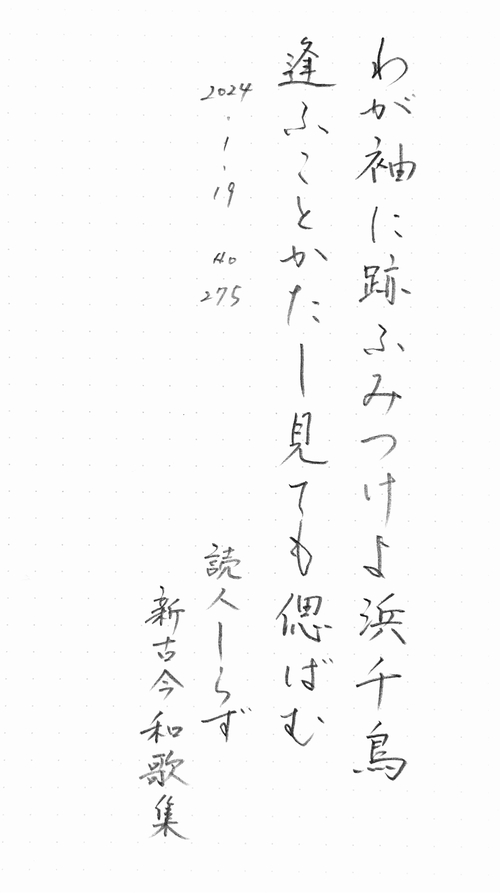 わが袖に跡ふみつけよ浜千鳥
逢ふことかたし見ても偲ばむ
2024.1.19 No 275
読人しらず
新古今和歌集